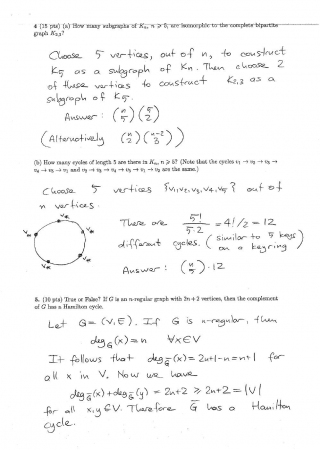 4 (15 pts) (a) How many subgraphs of K_n, n ⩾ 5, are isomorphic to the complete bipartite
graph K_{2,3}?
Choose 5 vertices, out of n, to construct
K_5 as a subgraph of K_n. Then choose 2
of these vertices to construct K_{2,3} as a
subgraph of K_5.
Answer: (n 5)(5 2)
(Alternatively (n 2)(n-2 3))
(b) How many cycles of length 5 are there in K_n, n ⩾ 5? (Note that the cycles v_1 → v_2 → v_3 →
v_4 → v_5 → v_1 and v_2 → v_3 → v_4 → v_5 → v_1 → v_2 are the same.)
Choose 5 vertices {v_1, v_2, v_3, v_4, v_5} out of
n vertices.
There are 5!/5·2 = 4!/2 = 12
different cycles. (similar to 5 keys on a keyring)
Answer: (n 5)·12
5. (10 pts) True or False? If G is an n-regular graph with 2n + 2 vertices, then the complement
of G has a Hamilton cycle.
Let G = (V, E). If G is n-regular, then
deg_G(x) = n ∀x∈V
It follows that deg_Ḡ(x) = 2n+1-n = n+1 for
all x in V. Now we have
deg_Ḡ(x) + deg_Ḡ(y) = 2n+2 ⩾ 2n+2 = |V|
for all x,y ∈V. Therefore Ḡ has a Hamilton
cycle.